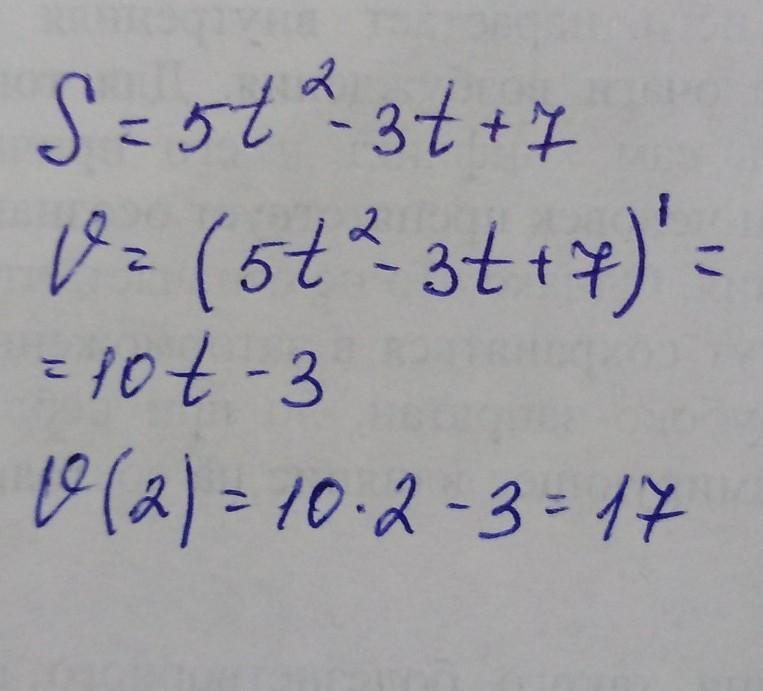 S = 5t² - 3t + 7
V = (5t² - 3t + 7)' =
= 10t - 3
V(2) = 10 · 2 - 3 = 17